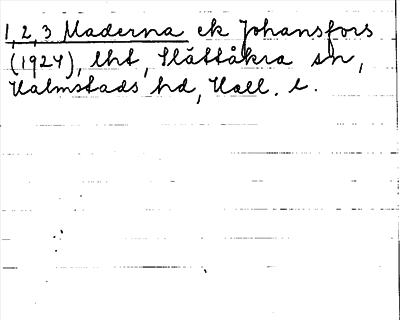 1,2,3 Maderna ek Johansfors
(1924), lht, Slättåkra sn,
Halmstads hd, Hall. l.